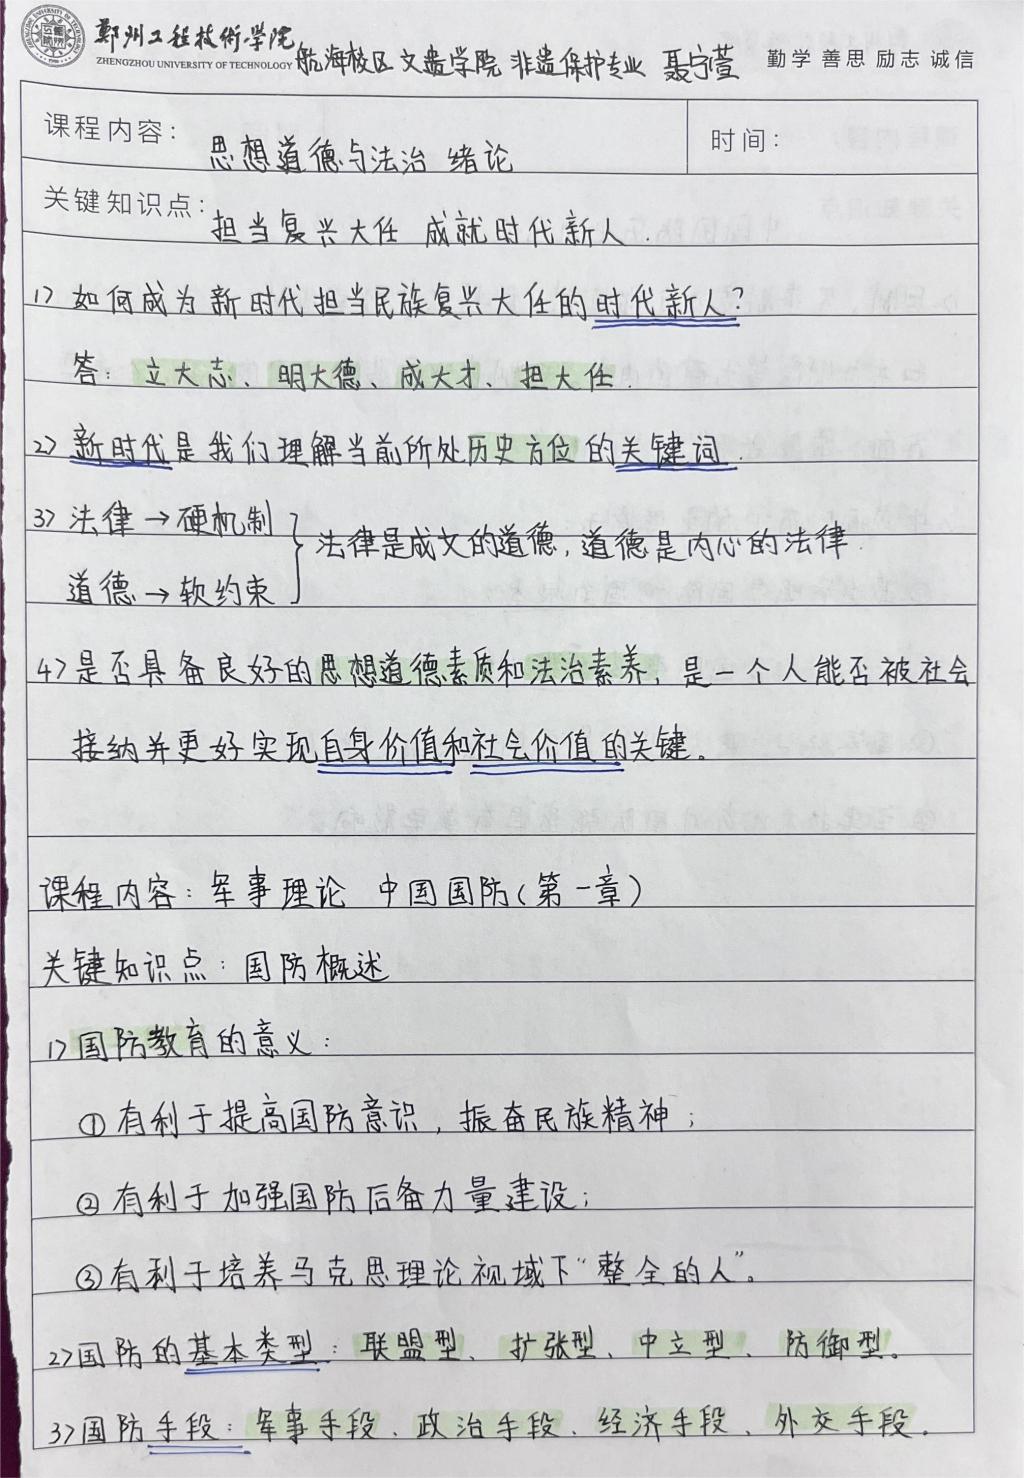 郑州工程技術学院
ZHENGZHOU UNIVERSITY OF TECHNOLOGY 航海校区 文遗学院 非遗保护专业 聂宁萱 勤学 善思 励志 诚信
课程内容: 思想道德与法治 绪论 时间:
关键知识点: 担当复兴大任 成就时代新人.
1> 如何成为新时代担当民族复兴大任的时代新人?
答: 立大志、明大德、成大才、担大任.
2> 新时代是我们理解当前所处历史方位的关键词.
3> 法律→硬机制
道德→软约束 } 法律是成文的道德,道德是内心的法律.
4> 是否具备良好的思想道德素质和法治素养,是一个人能否被社会
接纳并更好实现自身价值和社会价值的关键。
课程内容: 军事理论 中国国防(第一章)
关键知识点: 国防概述
1> 国防教育的意义:
①有利于提高国防意识,振奋民族精神;
②有利于加强国防后备力量建设;
③有利于培养马克思理论视域下“整全的人”。
2> 国防的基本类型: 联盟型、扩张型、中立型、防御型。
3> 国防手段: 军事手段、政治手段、经济手段、外交手段。